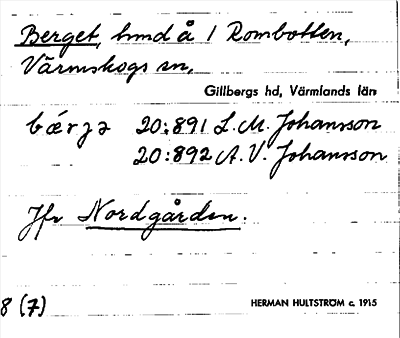 Berget, hmd å 1 Rombotten,
Värmskogs sn,
Gillbergs hd, Värmlands län
bǽrjə 20:891 L. M. Johansson
20:892 A. V. Johansson
Jfr Nordgården.
8 (7)
HERMAN HULTSTRÖM c. 1915